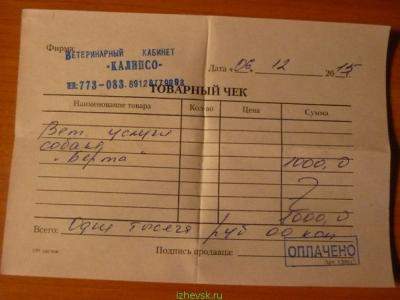 Фирма
ВЕТЕРИНАРНЫЙ КАБИНЕТ
«КАЛИПСО»
ТЕЛ: 773-083,
Дата « 06 » 12 2015
ТОВАРНЫЙ ЧЕК
Наименование товара Кол-во Цена Сумма
Вет. услуги
собака
"Берта" 1000,0
1000,0
Всего: Одна тысяча руб 00 коп
Подпись продавца:
ОПЛАЧЕНО
izhevsk.ru